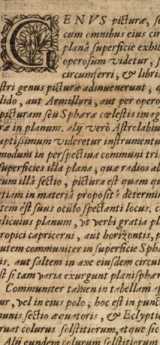 GENVS picturæ,
cum omnibus eius cir
planâ superficie exhib
operosum videtur,
circumferri, & libri
stri genus picturæ adinuenerunt,
lido, aut Armillari, aut per oper
picturam seu Sphæra cœlestis imag
ur in planum. Alij verò Astrolabiu
uptissimum videretur instrumentu
modum in perspectiua communi tra
superficies illa plana, quæ radios ad
cum illâ sectio, pictura est quam qu
etiam in materiâ propositâ determin
tem est ipsius oculo spectanti locus,
elicuius planum, ut verbi gratia po
tropici capricorni, aut horizontis,
utem communiter in superficie Sphæ
is, aut saltem in axe eiusdem circul
variæ exurgunt planisphæri
Communiter tamen in tabellam æ
ur, vel in eius polo, hoc est in punct
munis sectio æquatoris, & Eclyptic
rat colurus solstitiorum, et que sic
Alij eundem colurum solstitiorum